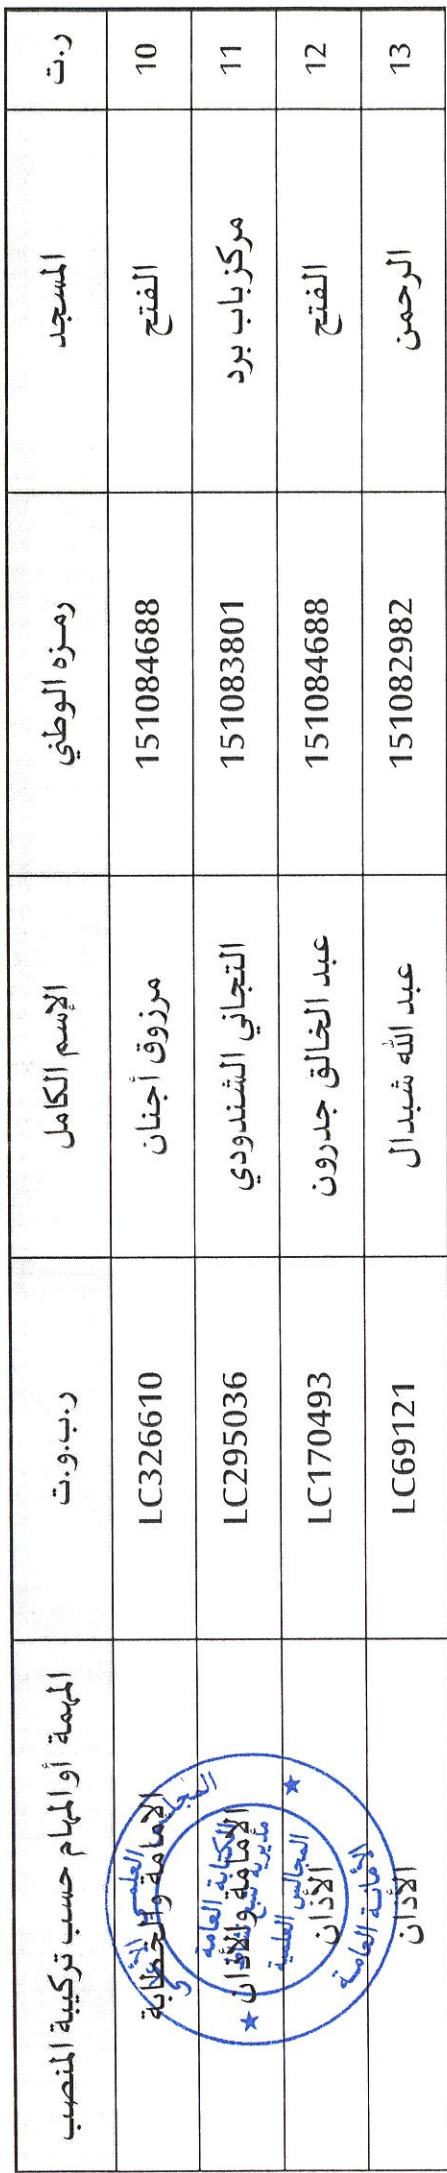 ر.ت المسجد رمزه الوطني الإسم الكامل ر.ب.و.ت المهمة أو المهام حسب تركيبة المنصب
10 الفتح 151084688 مرزوق أجنان LC326610 الإمامة والخطابة
11 مركز باب برد 151083801 التجاني الشندودي LC295036 الإمامة والأذان
12 الفتح 151084688 عبد الخالق جدرون LC170493 الأذان
13 الرحمن 151082982 عبد الله شبدال LC69121 الأذان
المجلس العلمي الأعلى
الكتابة العامة
مديرية
المجالس العلمية
الأمانة العامة